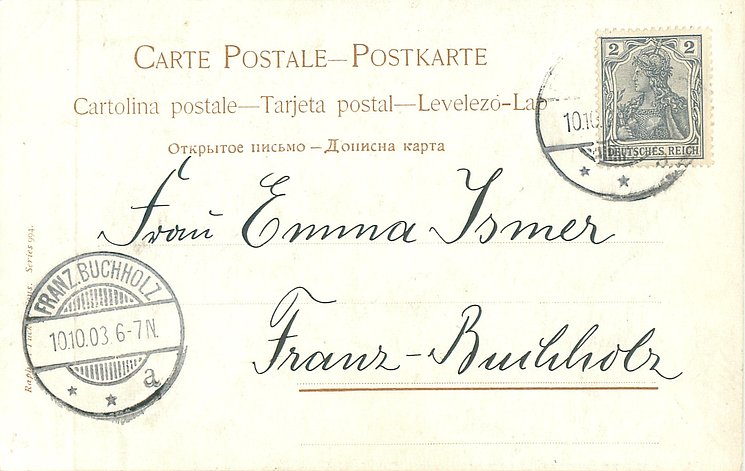 CARTE POSTALE—POSTKARTE
Cartolina postale—Tarjeta postal—Levelező-Lap
Открытое письмо – Дописна карта
2 2
DEUTSCHES REICH
10.10
Frau Emma Ismer
Franz-Buchholz
FRANZ.BUCHHOLZ
10.10.03. 6-7N.
a
Series 994.